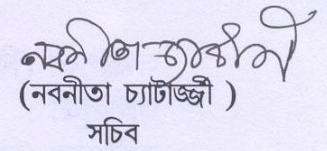 নবনীতা চ্যাটার্জ্জী
(নবনীতা চ্যাটার্জ্জী )
সচিব